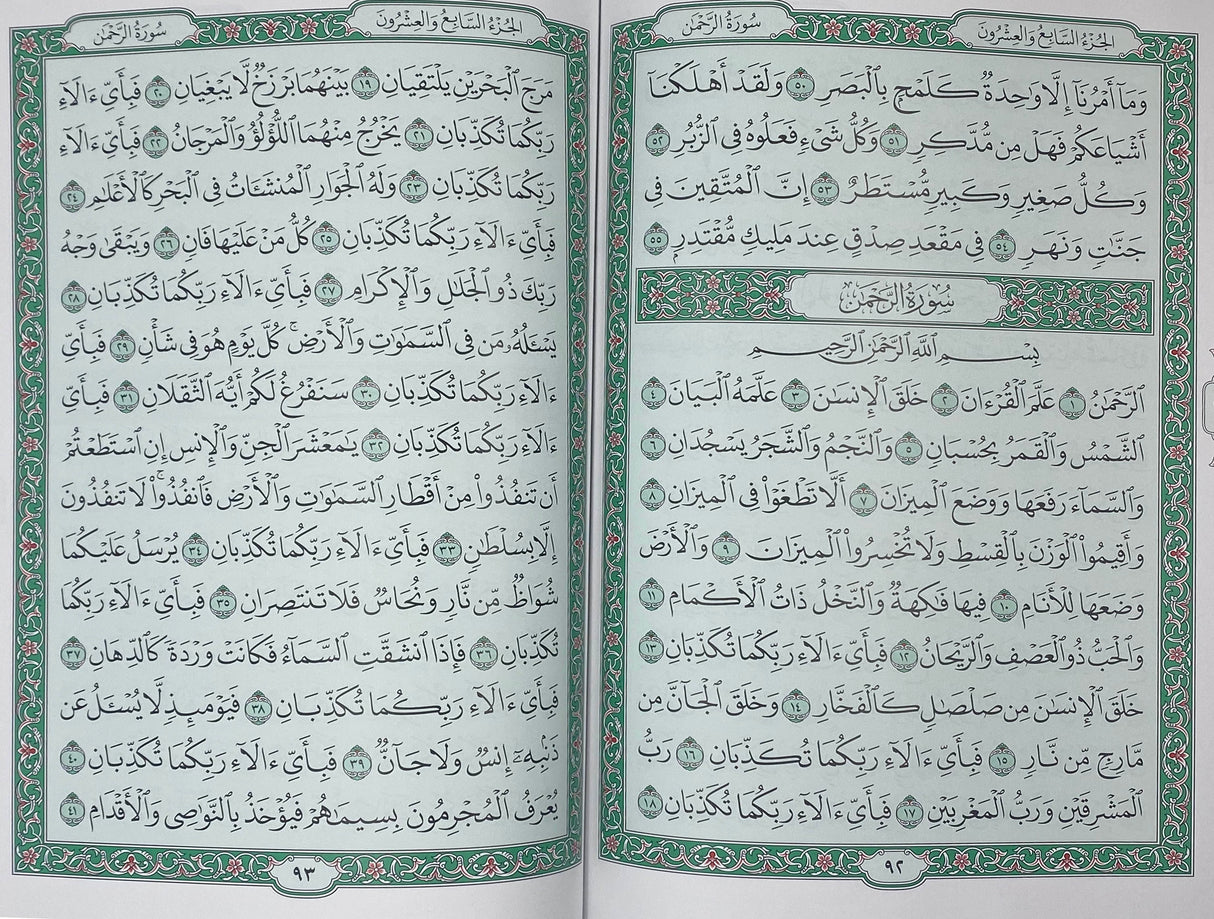 الجُزْءُ السَّابِعُ وَالعِشْرُونَ
سُورَةُ الرَّحْمَٰن
وَمَآ أَمْرُنَآ إِلَّا وَٰحِدَةٌ كَلَمْحٍۭ بِٱلْبَصَرِ ٥٠ وَلَقَدْ أَهْلَكْنَآ
أَشْيَاعَكُمْ فَهَلْ مِن مُّدَّكِرٍ ٥١ وَكُلُّ شَىْءٍ فَعَلُوهُ فِى ٱلزُّبُرِ ٥٢
وَكُلُّ صَغِيرٍ وَكَبِيرٍ مُّسْتَطَرٌ ٥٣ إِنَّ ٱلْمُتَّقِينَ فِى
جَنَّٰتٍ وَنَهَرٍ ٥٤ فِى مَقْعَدِ صِدْقٍ عِندَ مَلِيكٍ مُّقْتَدِرٍۭ ٥٥
سُورَةُ الرَّحْمَٰن
بِسْمِ ٱللَّهِ ٱلرَّحْمَٰنِ ٱلرَّحِيمِ
ٱلرَّحْمَٰنُ ١ عَلَّمَ ٱلْقُرْءَانَ ٢ خَلَقَ ٱلْإِنسَٰنَ ٣ عَلَّمَهُ ٱلْبَيَانَ ٤
ٱلشَّمْسُ وَٱلْقَمَرُ بِحُسْبَانٍ ٥ وَٱلنَّجْمُ وَٱلشَّجَرُ يَسْجُدَانِ ٦
وَٱلسَّمَآءَ رَفَعَهَا وَوَضَعَ ٱلْمِيزَانَ ٧ أَلَّا تَطْغَوْا۟ فِى ٱلْمِيزَانِ ٨
وَأَقِيمُوا۟ ٱلْوَزْنَ بِٱلْقِسْطِ وَلَا تُخْسِرُوا۟ ٱلْمِيزَانَ ٩ وَٱلْأَرْضَ
وَضَعَهَا لِلْأَنَامِ ١٠ فِيهَا فَٰكِهَةٌ وَٱلنَّخْلُ ذَاتُ ٱلْأَكْمَامِ ١١
وَٱلْحَبُّ ذُو ٱلْعَصْفِ وَٱلرَّيْحَانُ ١٢ فَبِأَىِّ ءَالَآءِ رَبِّكُمَا تُكَذِّبَانِ ١٣
خَلَقَ ٱلْإِنسَٰنَ مِن صَلْصَٰلٍ كَٱلْفَخَّارِ ١٤ وَخَلَقَ ٱلْجَآنَّ مِن
مَّارِجٍ مِّن نَّارٍ ١٥ فَبِأَىِّ ءَالَآءِ رَبِّكُمَا تُكَذِّبَانِ ١٦ رَبُّ
ٱلْمَشْرِقَيْنِ وَرَبُّ ٱلْمَغْرِبَيْنِ ١٧ فَبِأَىِّ ءَالَآءِ رَبِّكُمَا تُكَذِّبَانِ ١٨
٩٢
الجُزْءُ السَّابِعُ وَالعِشْرُونَ
سُورَةُ الرَّحْمَٰن
مَرَجَ ٱلْبَحْرَيْنِ يَلْتَقِيَانِ ١٩ بَيْنَهُمَا بَرْزَخٌ لَّا يَبْغِيَانِ ٢٠ فَبِأَىِّ ءَالَآءِ
رَبِّكُمَا تُكَذِّبَانِ ٢١ يَخْرُجُ مِنْهُمَا ٱللُّؤْلُؤُ وَٱلْمَرْجَانُ ٢٢ فَبِأَىِّ ءَالَآءِ
رَبِّكُمَا تُكَذِّبَانِ ٢٣ وَلَهُ ٱلْجَوَارِ ٱلْمُنشَـَٔاتُ فِى ٱلْبَحْرِ كَٱلْأَعْلَٰمِ ٢٤
فَبِأَىِّ ءَالَآءِ رَبِّكُمَا تُكَذِّبَانِ ٢٥ كُلُّ مَنْ عَلَيْهَا فَانٍ ٢٦ وَيَبْقَىٰ وَجْهُ
رَبِّكَ ذُو ٱلْجَلَٰلِ وَٱلْإِكْرَامِ ٢٧ فَبِأَىِّ ءَالَآءِ رَبِّكُمَا تُكَذِّبَانِ ٢٨
يَسْـَٔلُهُۥ مَن فِى ٱلسَّمَٰوَٰتِ وَٱلْأَرْضِ ۚ كُلَّ يَوْمٍ هُوَ فِى شَأْنٍ ٢٩ فَبِأَىِّ
ءَالَآءِ رَبِّكُمَا تُكَذِّبَانِ ٣٠ سَنَفْرُغُ لَكُمْ أَيُّهَ ٱلثَّقَلَانِ ٣١ فَبِأَىِّ
ءَالَآءِ رَبِّكُمَا تُكَذِّبَانِ ٣٢ يَٰمَعْشَرَ ٱلْجِنِّ وَٱلْإِنسِ إِنِ ٱسْتَطَعْتُمْ
أَن تَنفُذُوا۟ مِنْ أَقْطَارِ ٱلسَّمَٰوَٰتِ وَٱلْأَرْضِ فَٱنفُذُوا۟ ۚ لَا تَنفُذُونَ
إِلَّا بِسُلْطَٰنٍ ٣٣ فَبِأَىِّ ءَالَآءِ رَبِّكُمَا تُكَذِّبَانِ ٣٤ يُرْسَلُ عَلَيْكُمَا
شُوَاظٌ مِّن نَّارٍ وَنُحَاسٌ فَلَا تَنتَصِرَانِ ٣٥ فَبِأَىِّ ءَالَآءِ رَبِّكُمَا
تُكَذِّبَانِ ٣٦ فَإِذَا ٱنشَقَّتِ ٱلسَّمَآءُ فَكَانَتْ وَرْدَةً كَٱلدِّهَانِ ٣٧
فَبِأَىِّ ءَالَآءِ رَبِّكُمَا تُكَذِّبَانِ ٣٨ فَيَوْمَئِذٍ لَّا يُسْـَٔلُ عَن
ذَنۢبِهِۦٓ إِنسٌ وَلَا جَآنٌّ ٣٩ فَبِأَىِّ ءَالَآءِ رَبِّكُمَا تُكَذِّبَانِ ٤٠
يُعْرَفُ ٱلْمُجْرِمُونَ بِسِيمَٰهُمْ فَيُؤْخَذُ بِٱلنَّوَٰصِى وَٱلْأَقْدَامِ ٤١
٩٣